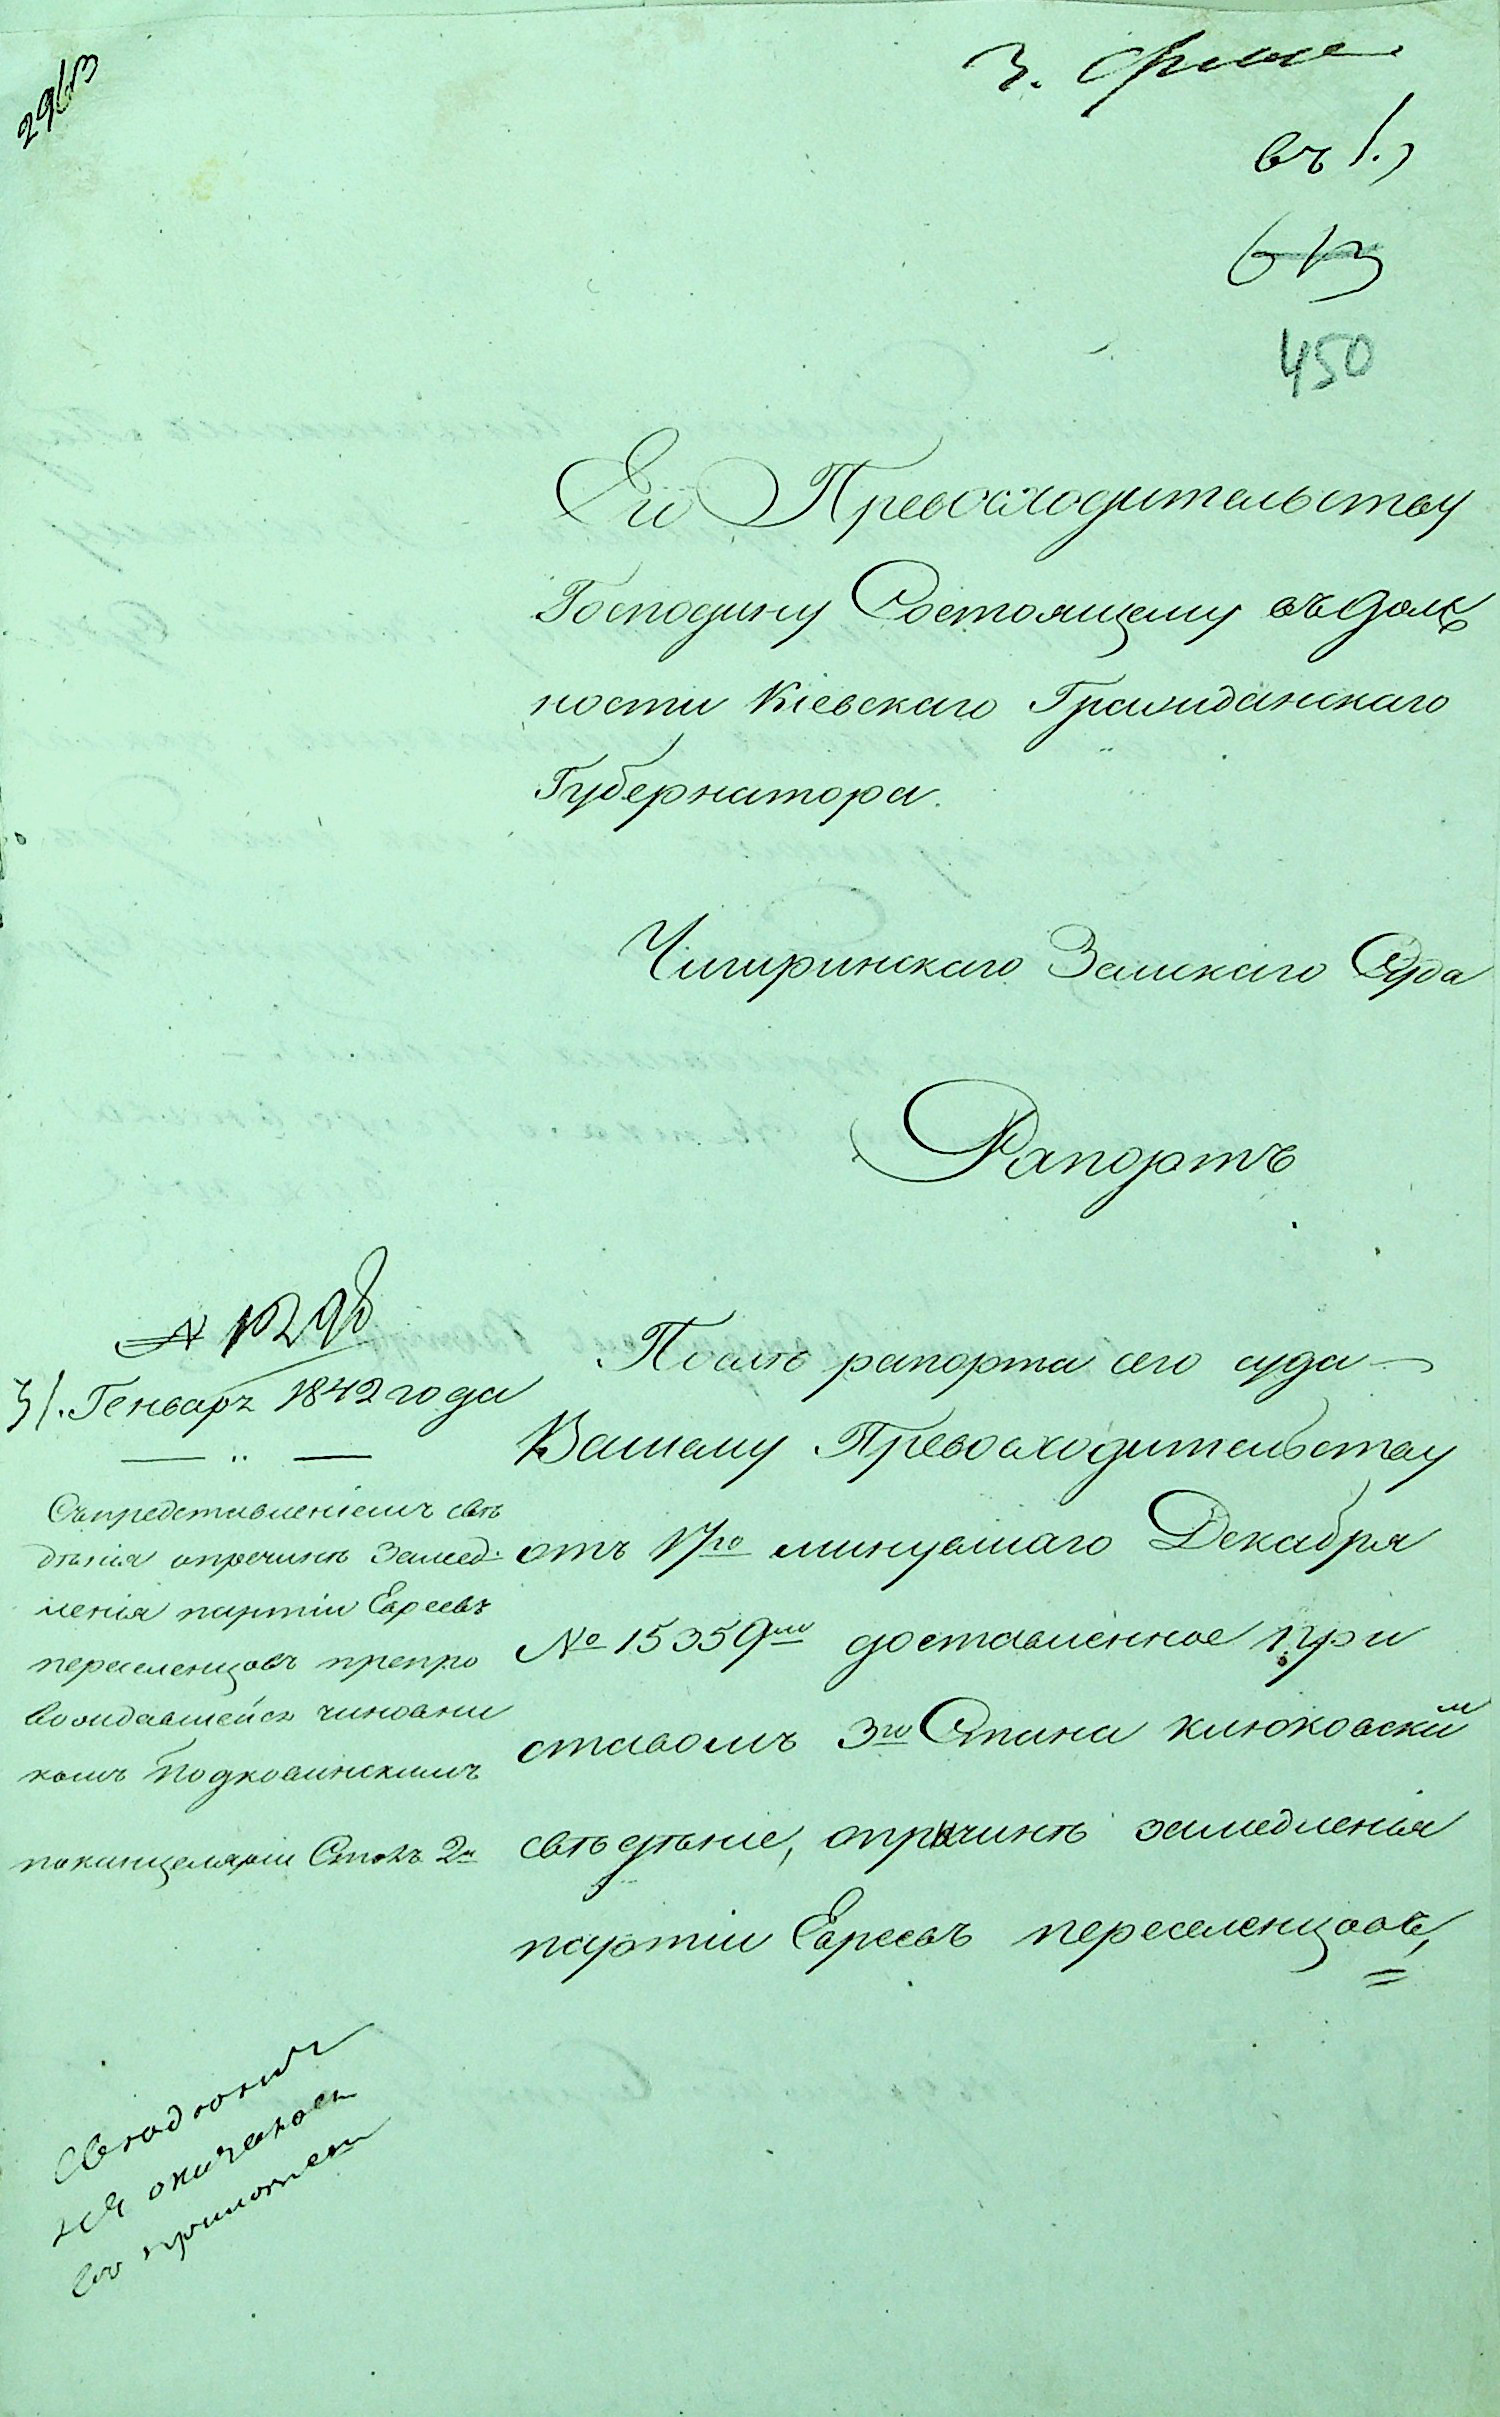 въ 1.
450
Его Превосходительству
Господину Состоящему въ долж
ности Кіевскаго Гражданскаго
Губернатора.
Чигиринскаго Земскаго Суда
Рапортъ
№ 1298
31. Генваря 1842 года
Съ представленіемъ свѣ
дѣнія опричинѣ замед-
ленія партіи Евреевъ
переселенцовъ препро
вождавшейся чиновни
комъ Подковинскимъ
поканцеляріи Столъ 2й
Послѣ рапорта сего суда
Вашему Превосходительству
отъ 17го минувшаго Декабря
№ 15359мъ доставленное при
ставомъ 3го Стана Клюковскимъ
свѣдѣніе, опричинѣ замедленія
партіи Евреевъ переселенцовъ,